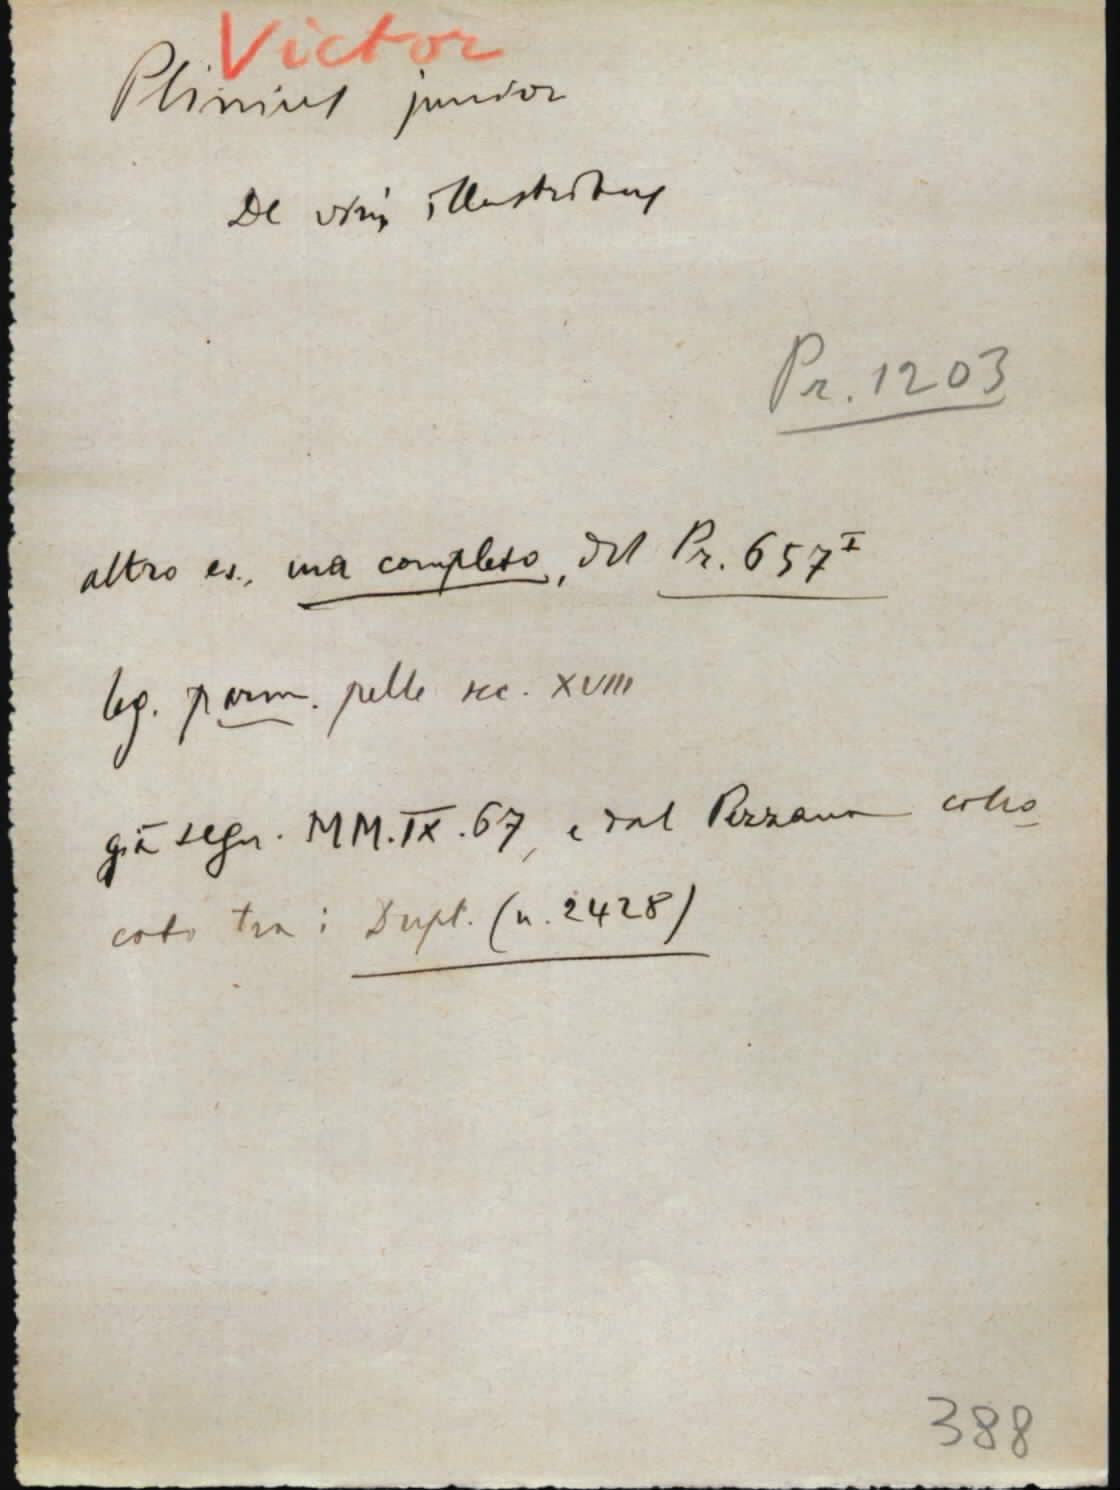 Victor
Plinius junior
De viris illustribus
Pr. 1203
altro es., ma completo, del Pr. 657 I
leg. parm. pelle sec. XVIII
già segn. MM.IX.67, e dal Pezzana collo
cato tra i Dupl. (n. 2428)
388